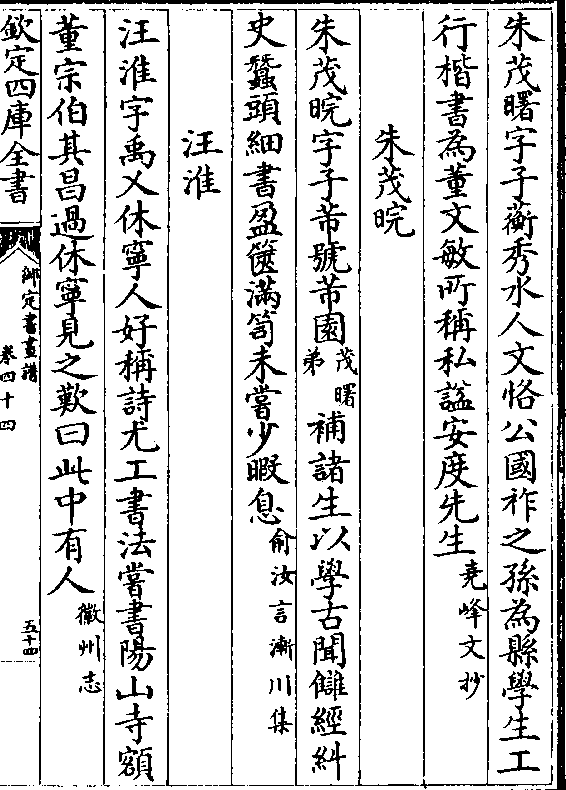 朱茂曙字子蘅秀水人文恪公國祚之孫為縣學生工
行楷書為董文敏所稱私諡安度先生堯峰文抄
朱茂晥
朱茂晥字子芾號芾園茂曙弟補諸生以學古聞讎經糾
史蠶頭細書盈篋滿笥未嘗少暇息俞汝言漸川集
汪淮
汪淮字禹乂休寧人好稱詩尤工書法嘗書陽山寺額
董宗伯其昌過休寧見之歎曰此中有人徽州志
欽定四庫全書
御定書畫譜
卷四十四
五十四